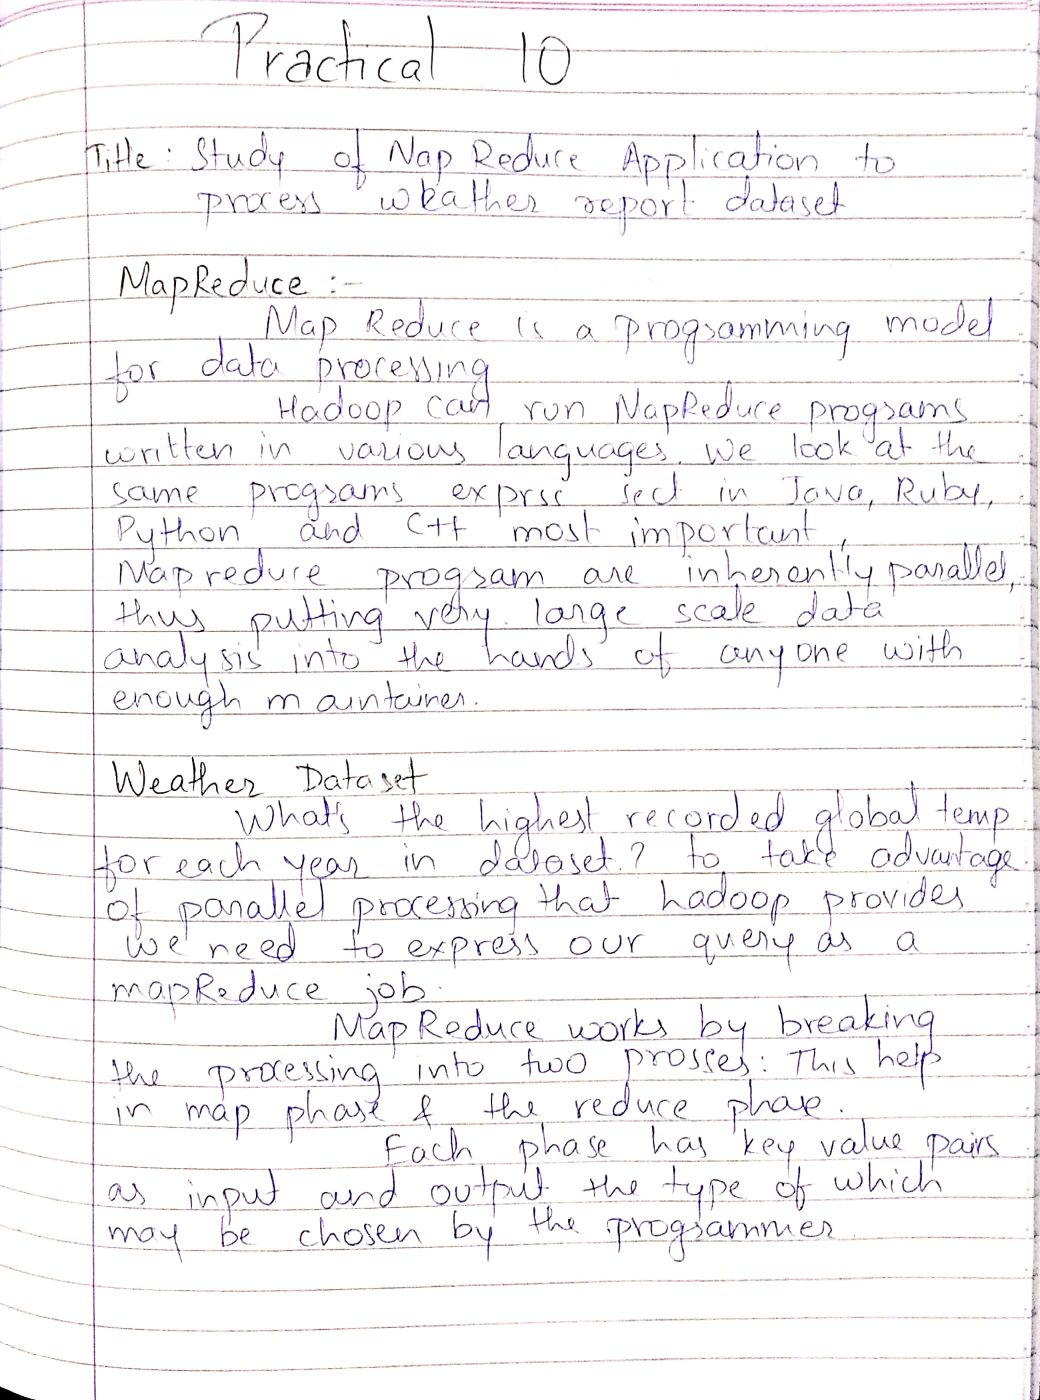 Practical 10
Title: Study of Nap Reduce Application to
process weather report dataset
MapReduce :-
Map Reduce is a programming model
for data processing
Hadoop can run NapReduce programs
written in various languages. we look at the
same programs exprss sed in Java, Ruby,
Python and C++ most important,
Mapreduce program are inherently parallel,
thus putting very large scale data
analysis into the hands of anyone with
enough maintainer.
Weather Dataset
What's the highest recorded global temp
for each year in dataset.? to take advantage
of parallel processing that hadoop provides
we need to express our query as a
mapReduce job.
MapReduce works by breaking
the processing into two prosses: This help
in map phase & the reduce phase.
Each phase has key value pairs
as input and output the type of which
may be chosen by the programmer